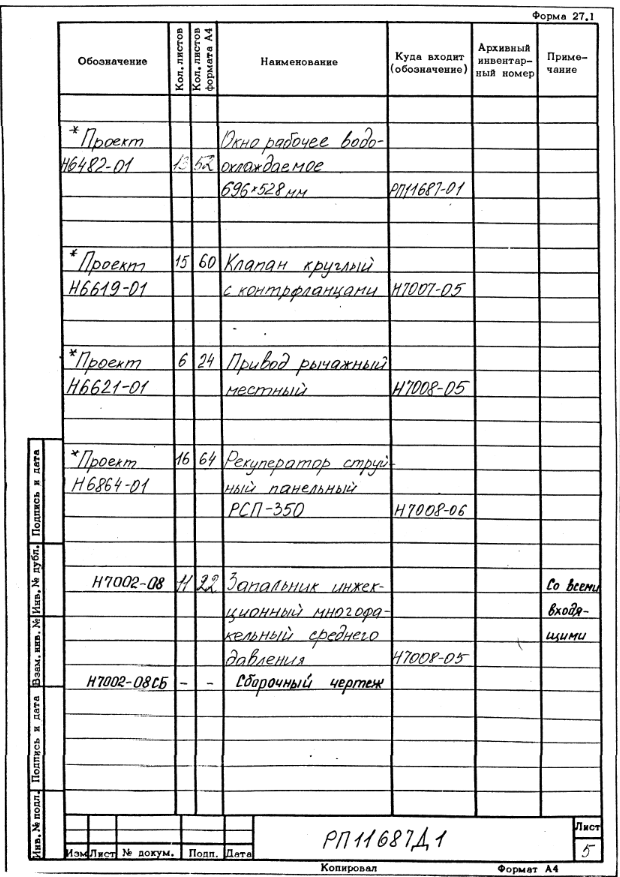 Форма 27.1
Обозначение Кол. листов Кол. листов формата А4 Наименование Куда входит (обозначение) Архивный инвентарный номер Примечание
* Проект Окно рабочее водо-
Н6482-01 13 52 охлаждаемое
696×528 мм РП11687-01
* Проект 15 60 Клапан круглый
Н6619-01 с контрфланцами Н7007-05
* Проект 6 24 Привод рычажный
Н6621-01 местный Н7008-05
* Проект 16 64 Рекуператор струй-
Н6864-01 ный панельный
РСП-350 Н7008-06
Н7002-08 11 22 Запальник инжек- Со всеми
ционный многофа- входя-
кельный среднего щими
давления Н7008-05
Н7002-08СБ - - Сборочный чертеж
Инв. № подл. Подпись и дата Взам. инв. № Инв. № дубл. Подпись и дата
РП11687Д1
Лист
5
Изм Лист № докум. Подп. Дата
Копировал Формат А4